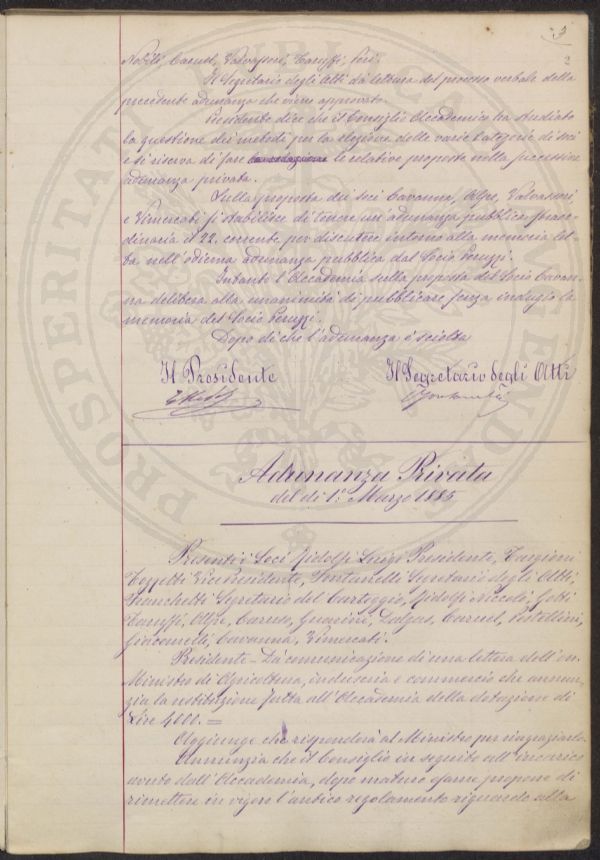 3
2
Nobili, Caruel, Valvassori, Caruffi, Peri.
Il Segretario degli Atti dà lettura del processo verbale della
precedente adunanza che viene approvato.
Presidente dice che il Consiglio Accademico ha studiato
la questione dei metodi per la elezione delle varie Categorie di soci
e si riserva di fare le relative proposte nella successiva
adunanza privata.
Sulla proposta dei soci Cavanna, Alpe, Valvassori
e Vimercati si stabilisce di tenere un'adunanza pubblica straor-
dinaria il 22. corrente per discutere intorno alla memoria let-
ta nell'odierna adunanza pubblica dal Socio Peruzzi.
Intanto l'Accademia sulla proposta del Socio Cavan-
na delibera alla unanimità di pubblicare senza indugio la
memoria del Socio Peruzzi.
Dopo di che l'adunanza è sciolta
Il Presidente
Il Segretario degli Atti
Adunanza Privata
del dì 1.° Marzo 1885
Presenti i Soci Ridolfi Luigi Presidente, Targioni
Tozzetti Vicepresidente, Fontanelli Segretario degli Atti,
Franchetti Segretario del Carteggio, Ridolfi Niccolò,
Caruffi, Alpe, Caruso, Guarini, Dalgas, Caruel, Pestellini,
Giacomelli, Cavanna, Vimercati.
Presidente – Dà comunicazione di una lettera dell'on.
Ministro di Agricoltura, industria e commercio che annun-
zia la restituzione fatta all'Accademia della dotazione di
Lire 4000. =
Aggiunge che risponderà al Ministro per ringraziarlo
Annunzia che il Consiglio in seguito all'incarico
avuto dall'Accademia, dopo maturo esame propone di
rimettere in vigore l'antico regolamento riguardo alla
PROSPERITATI PUBLICAE AUGENDAE